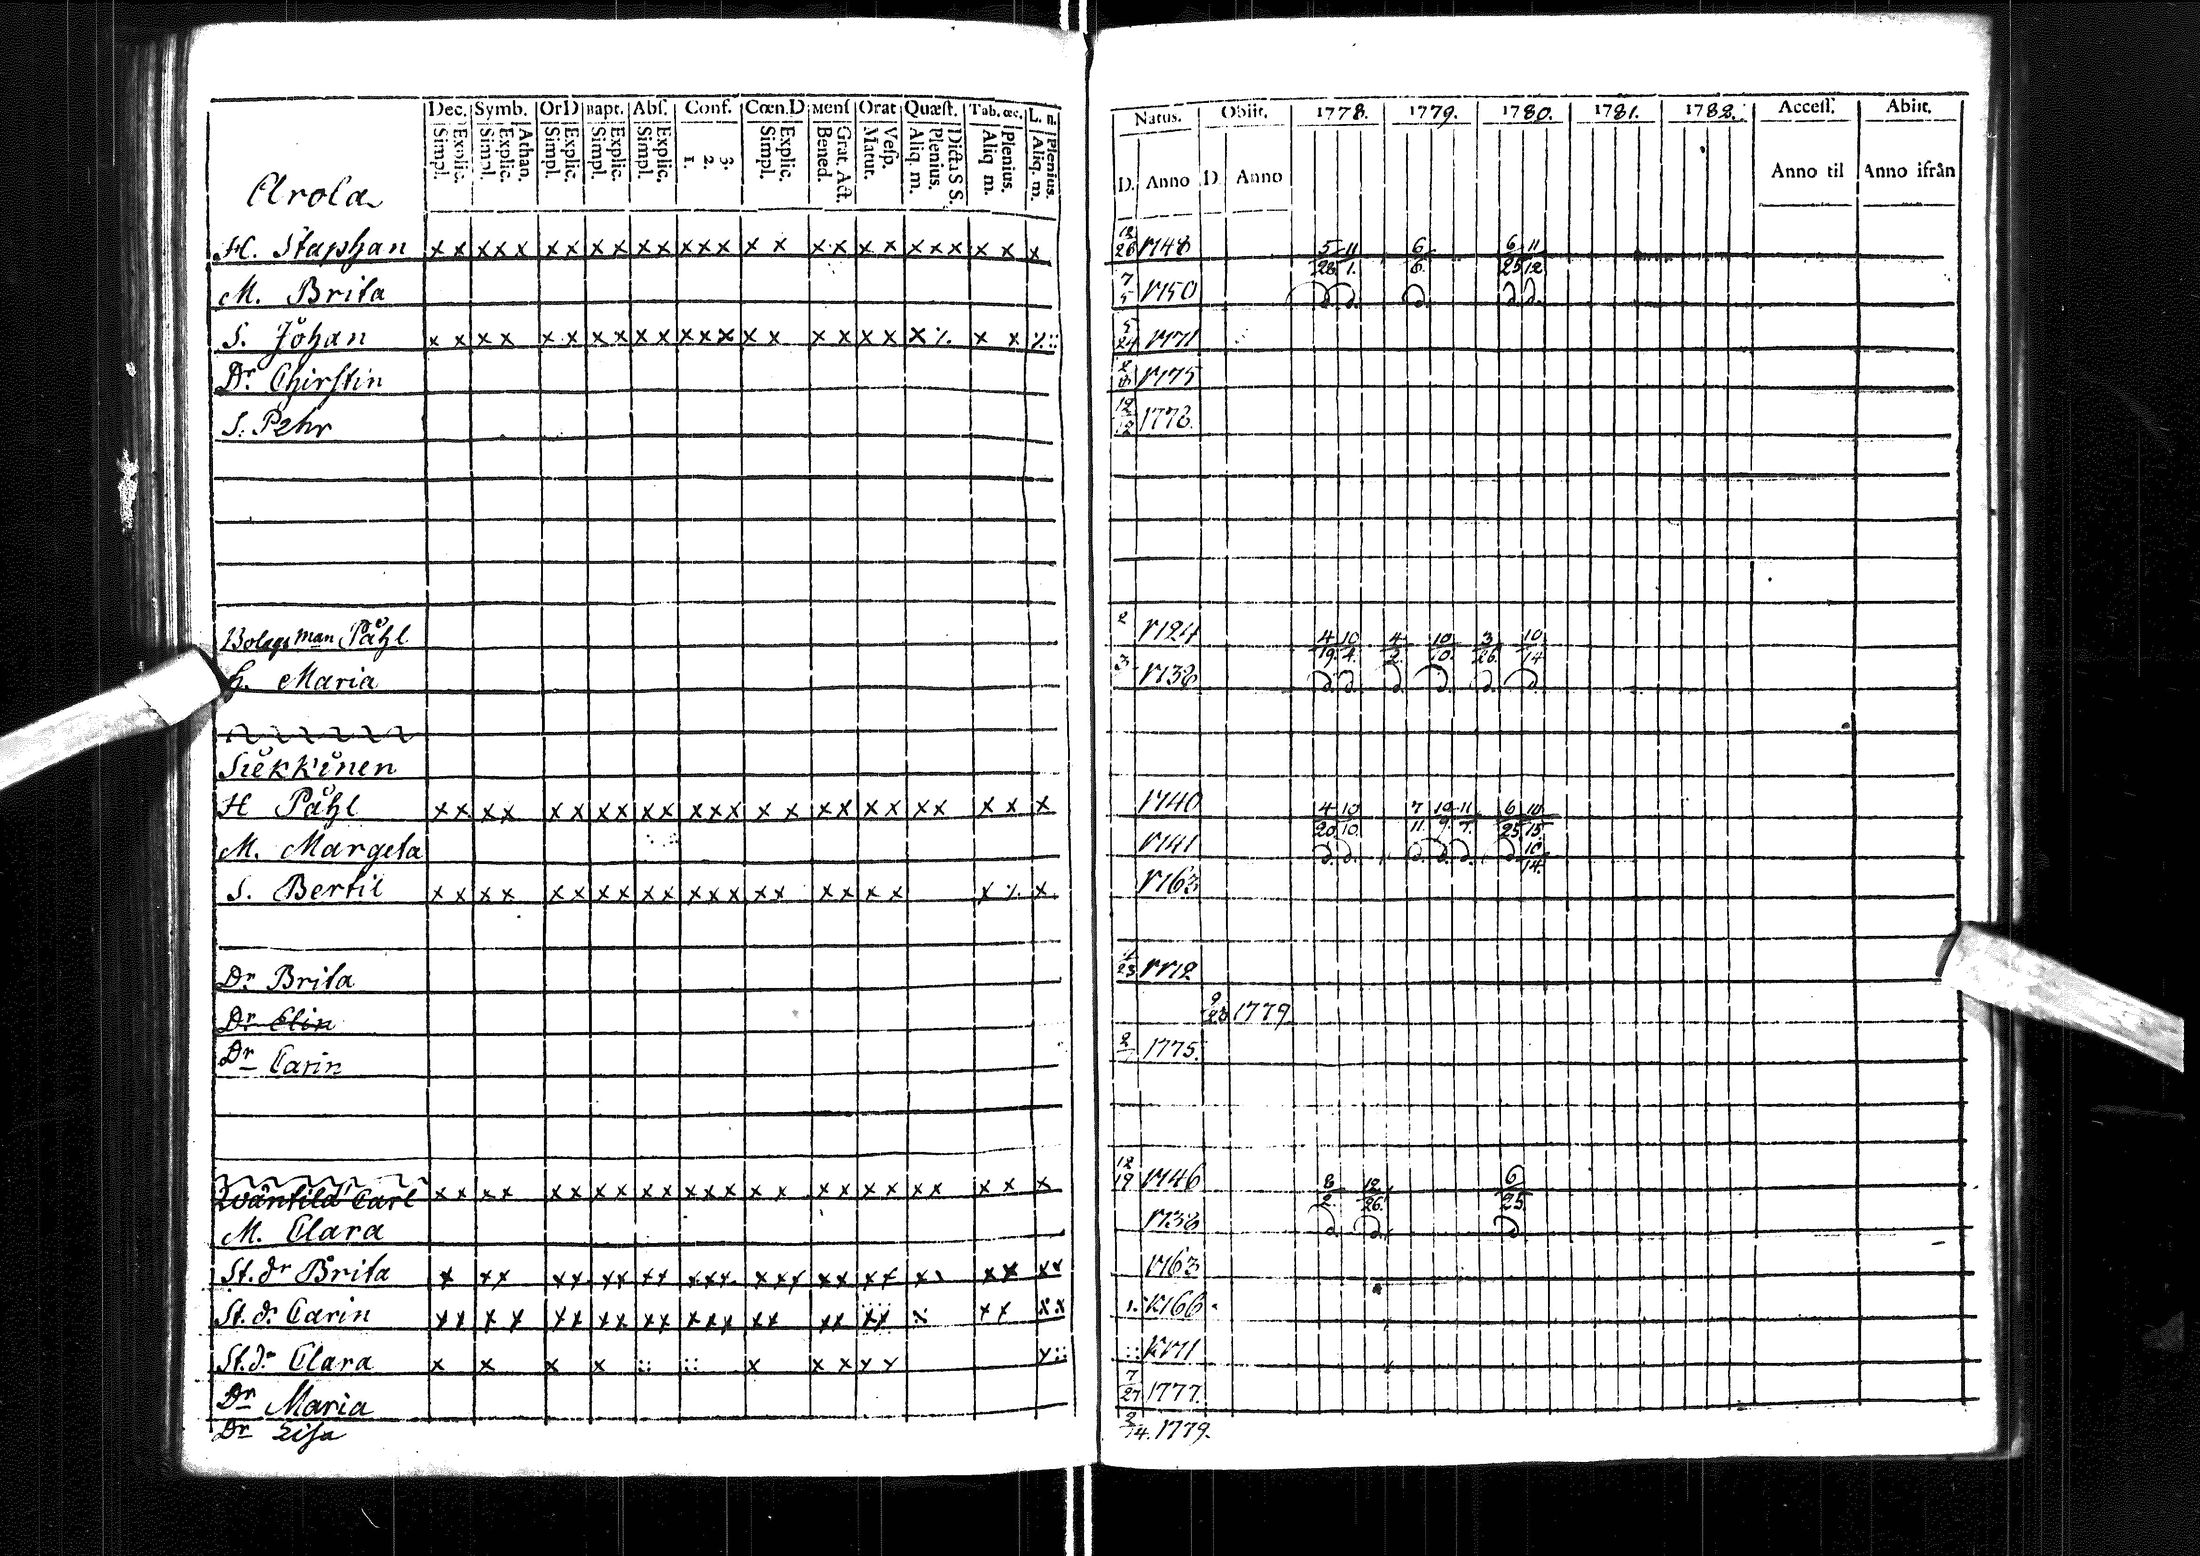 Dec. Symb. OrD Bapt. Abs. Conf. Cœn.D Mens Orat Quæst. Tab.œc. L. n.
Simpl. Explic. Simpl. Explic. Athan. Simpl. Explic. Simpl. Explic. Simpl. Explic. 1. 2. 3. Simpl. Explic. Bened. Grat. Act. Matut. Vesp. Aliq. m. Plenius. Dict.S S. Aliq m. Plenius. Aliq. m. Plenius.
Arola
H. Staphan x x x x x x x x x x x x x x x x x x x x x x x x x x
M. Brita
S. Johan x x x x x x x x x x x x x x x x x x x x x
Dr. Chirstin
S. Pehr
Bolagsman Påhl
h. Maria
Siekkinen
H Påhl x x x x x x x x x x x x x x x x x x x x x x x x
M. Margeta
S. Bertil x x x x x x x x x x x x x x x x x x x x x
Dr Brita
Dr Elin
Dr Carin
Carl x x x x x x x x x x x x x x x x x x x x x x x x
M. Clara
St. dr Brita
St. dr Carin
St. dr Clara
Dr Maria
Dr Lisa
Natus. Obiit. 1778. 1779. 1780. 1781. 1782. Access. Abiit.
D. Anno D. Anno Anno til Anno ifrån
12/26 1748 5/28 11/1. 6/6. 6/25 11/12
7/5 1750
5/24 1771
1775
12/12 1778.
2 1724 4/19. 10/4. 4/2. 10/10. 3/26. 10/14
3 1738
1740 4/20. 10/10. 7/11. 10/9. 11/7. 6/25 10/15.
1741 10/14.
1763
1772
9/28 1779.
1775.
12/19 1746 8/2. 12/26. 6/25.
1738
1763
1766
1771
7/27 1777.
1779.